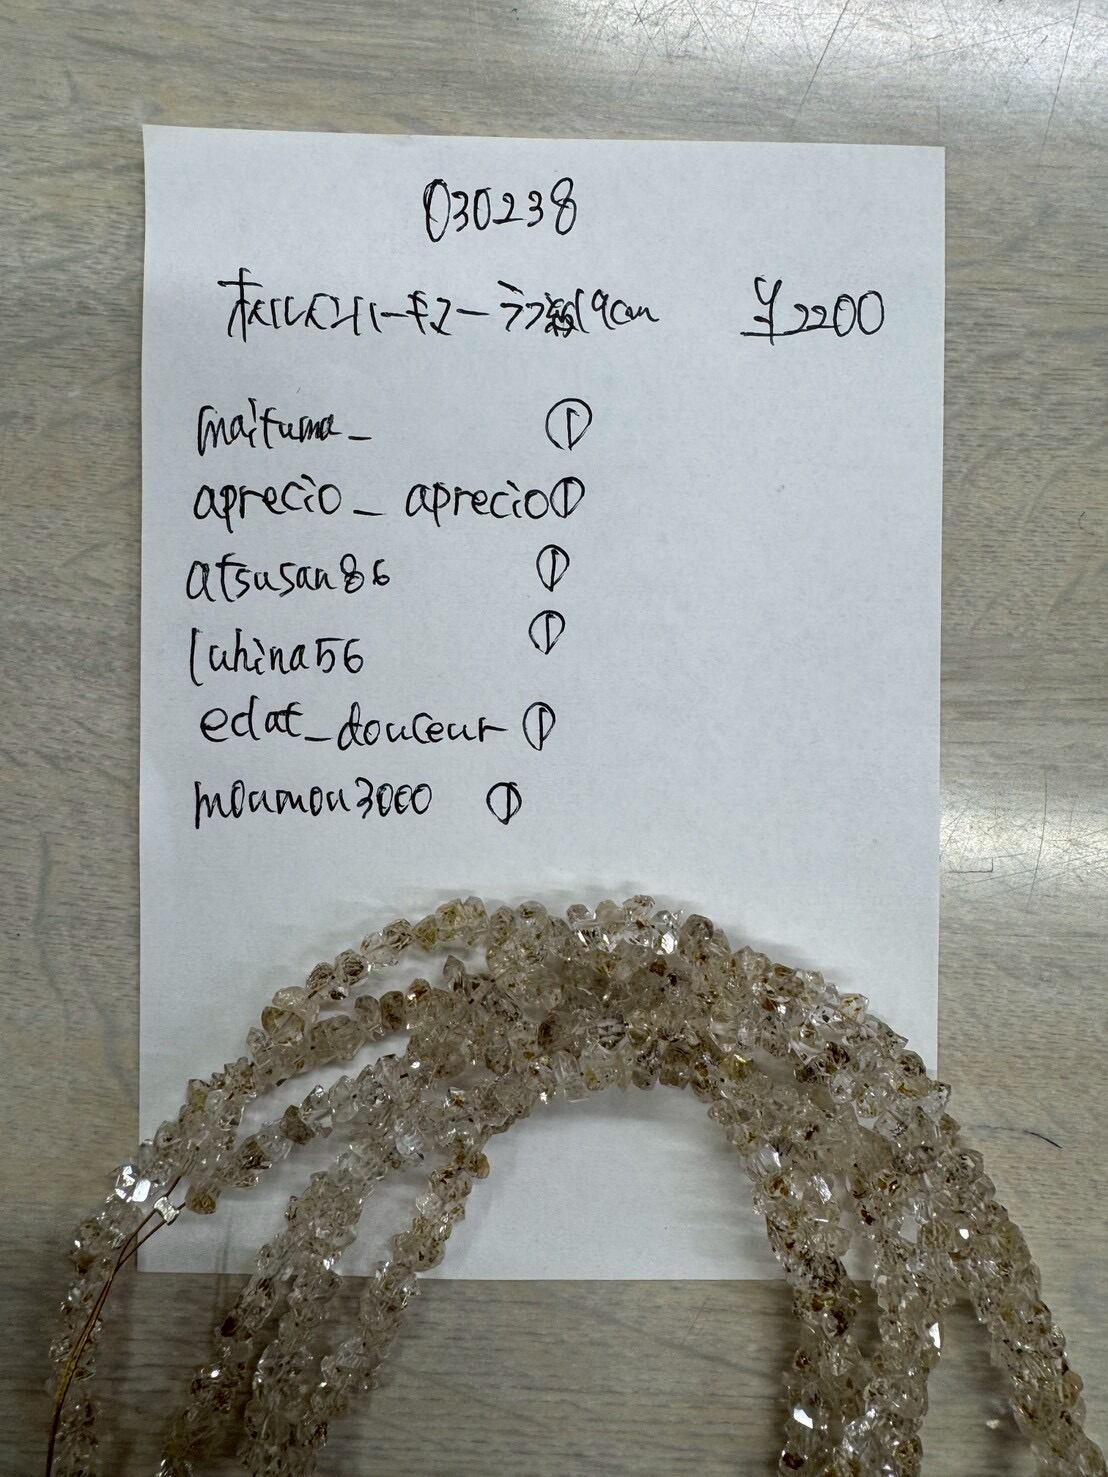 030238
ハーキマー 19cm ¥2200
maituma_ ①
aprecio_aprecio ①
atsusan86 ①
luhina56 ①
eclat_douceur ①
moumou3000 ①